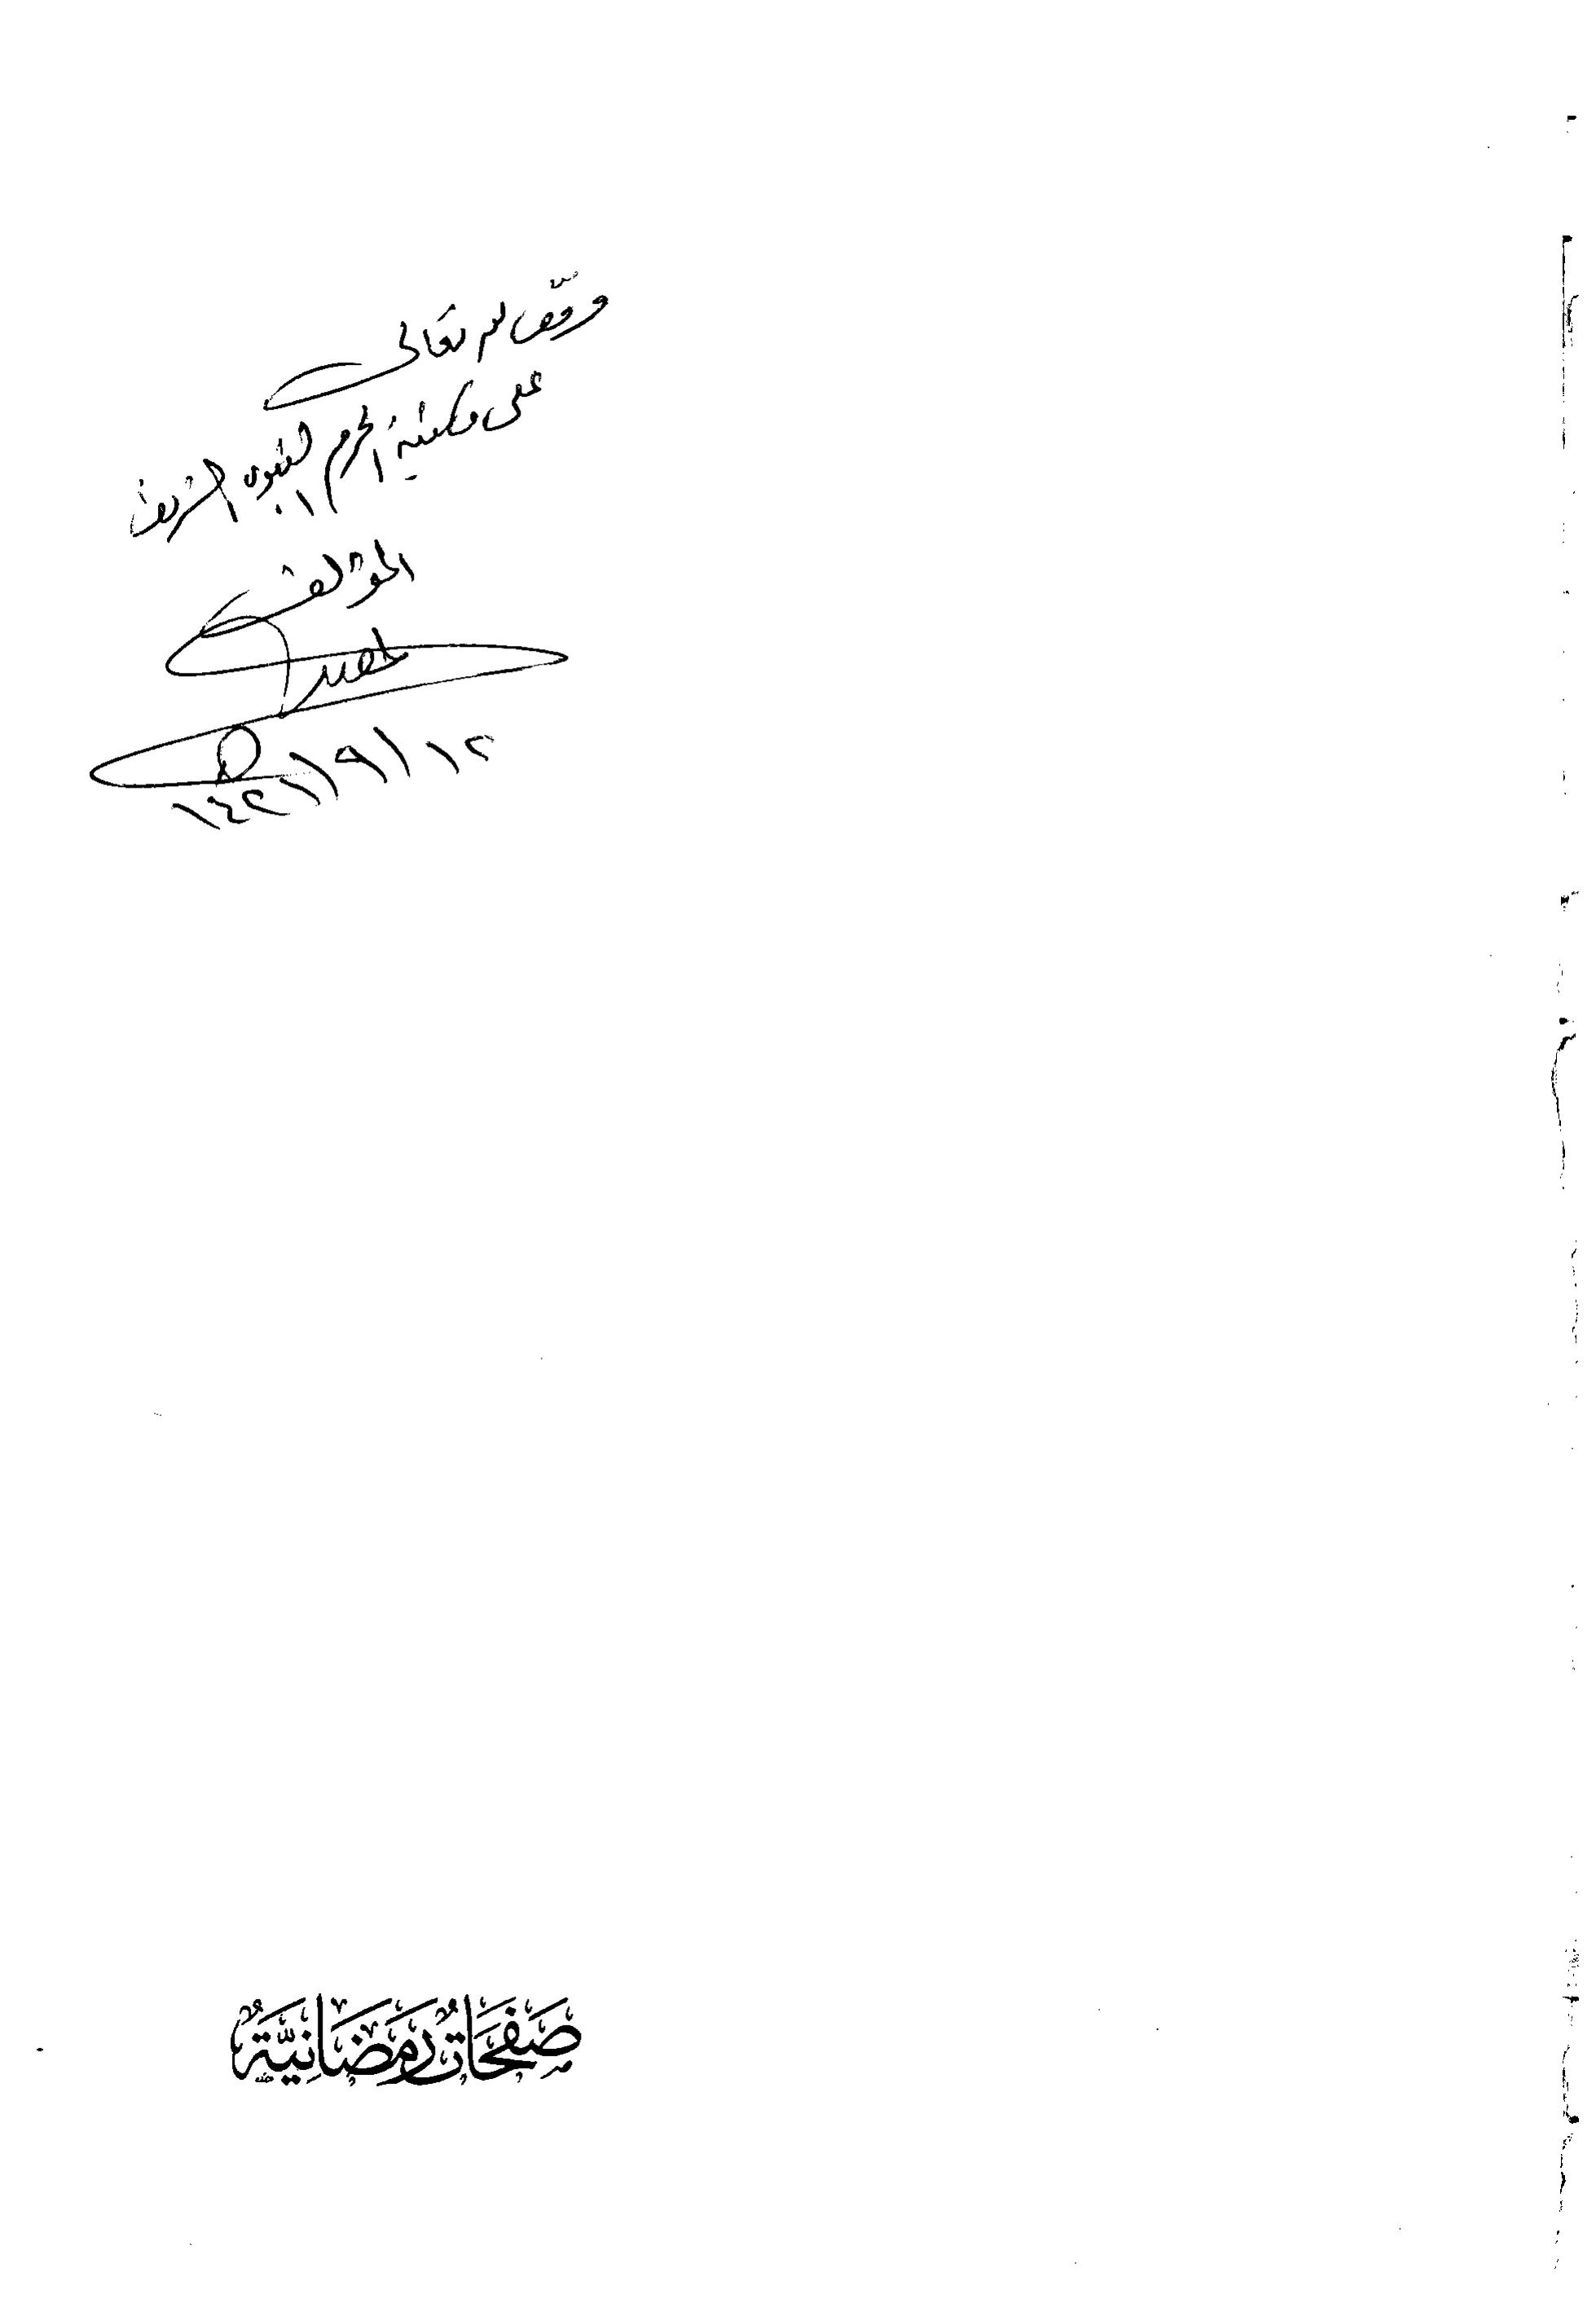 وقف لله تعالى
على مكتبة الحرم النبوي الشريف
المؤلف
١٤٢١/٩/١٢
صَفَحَاتٌ رَمَضَانِيَّةٌ